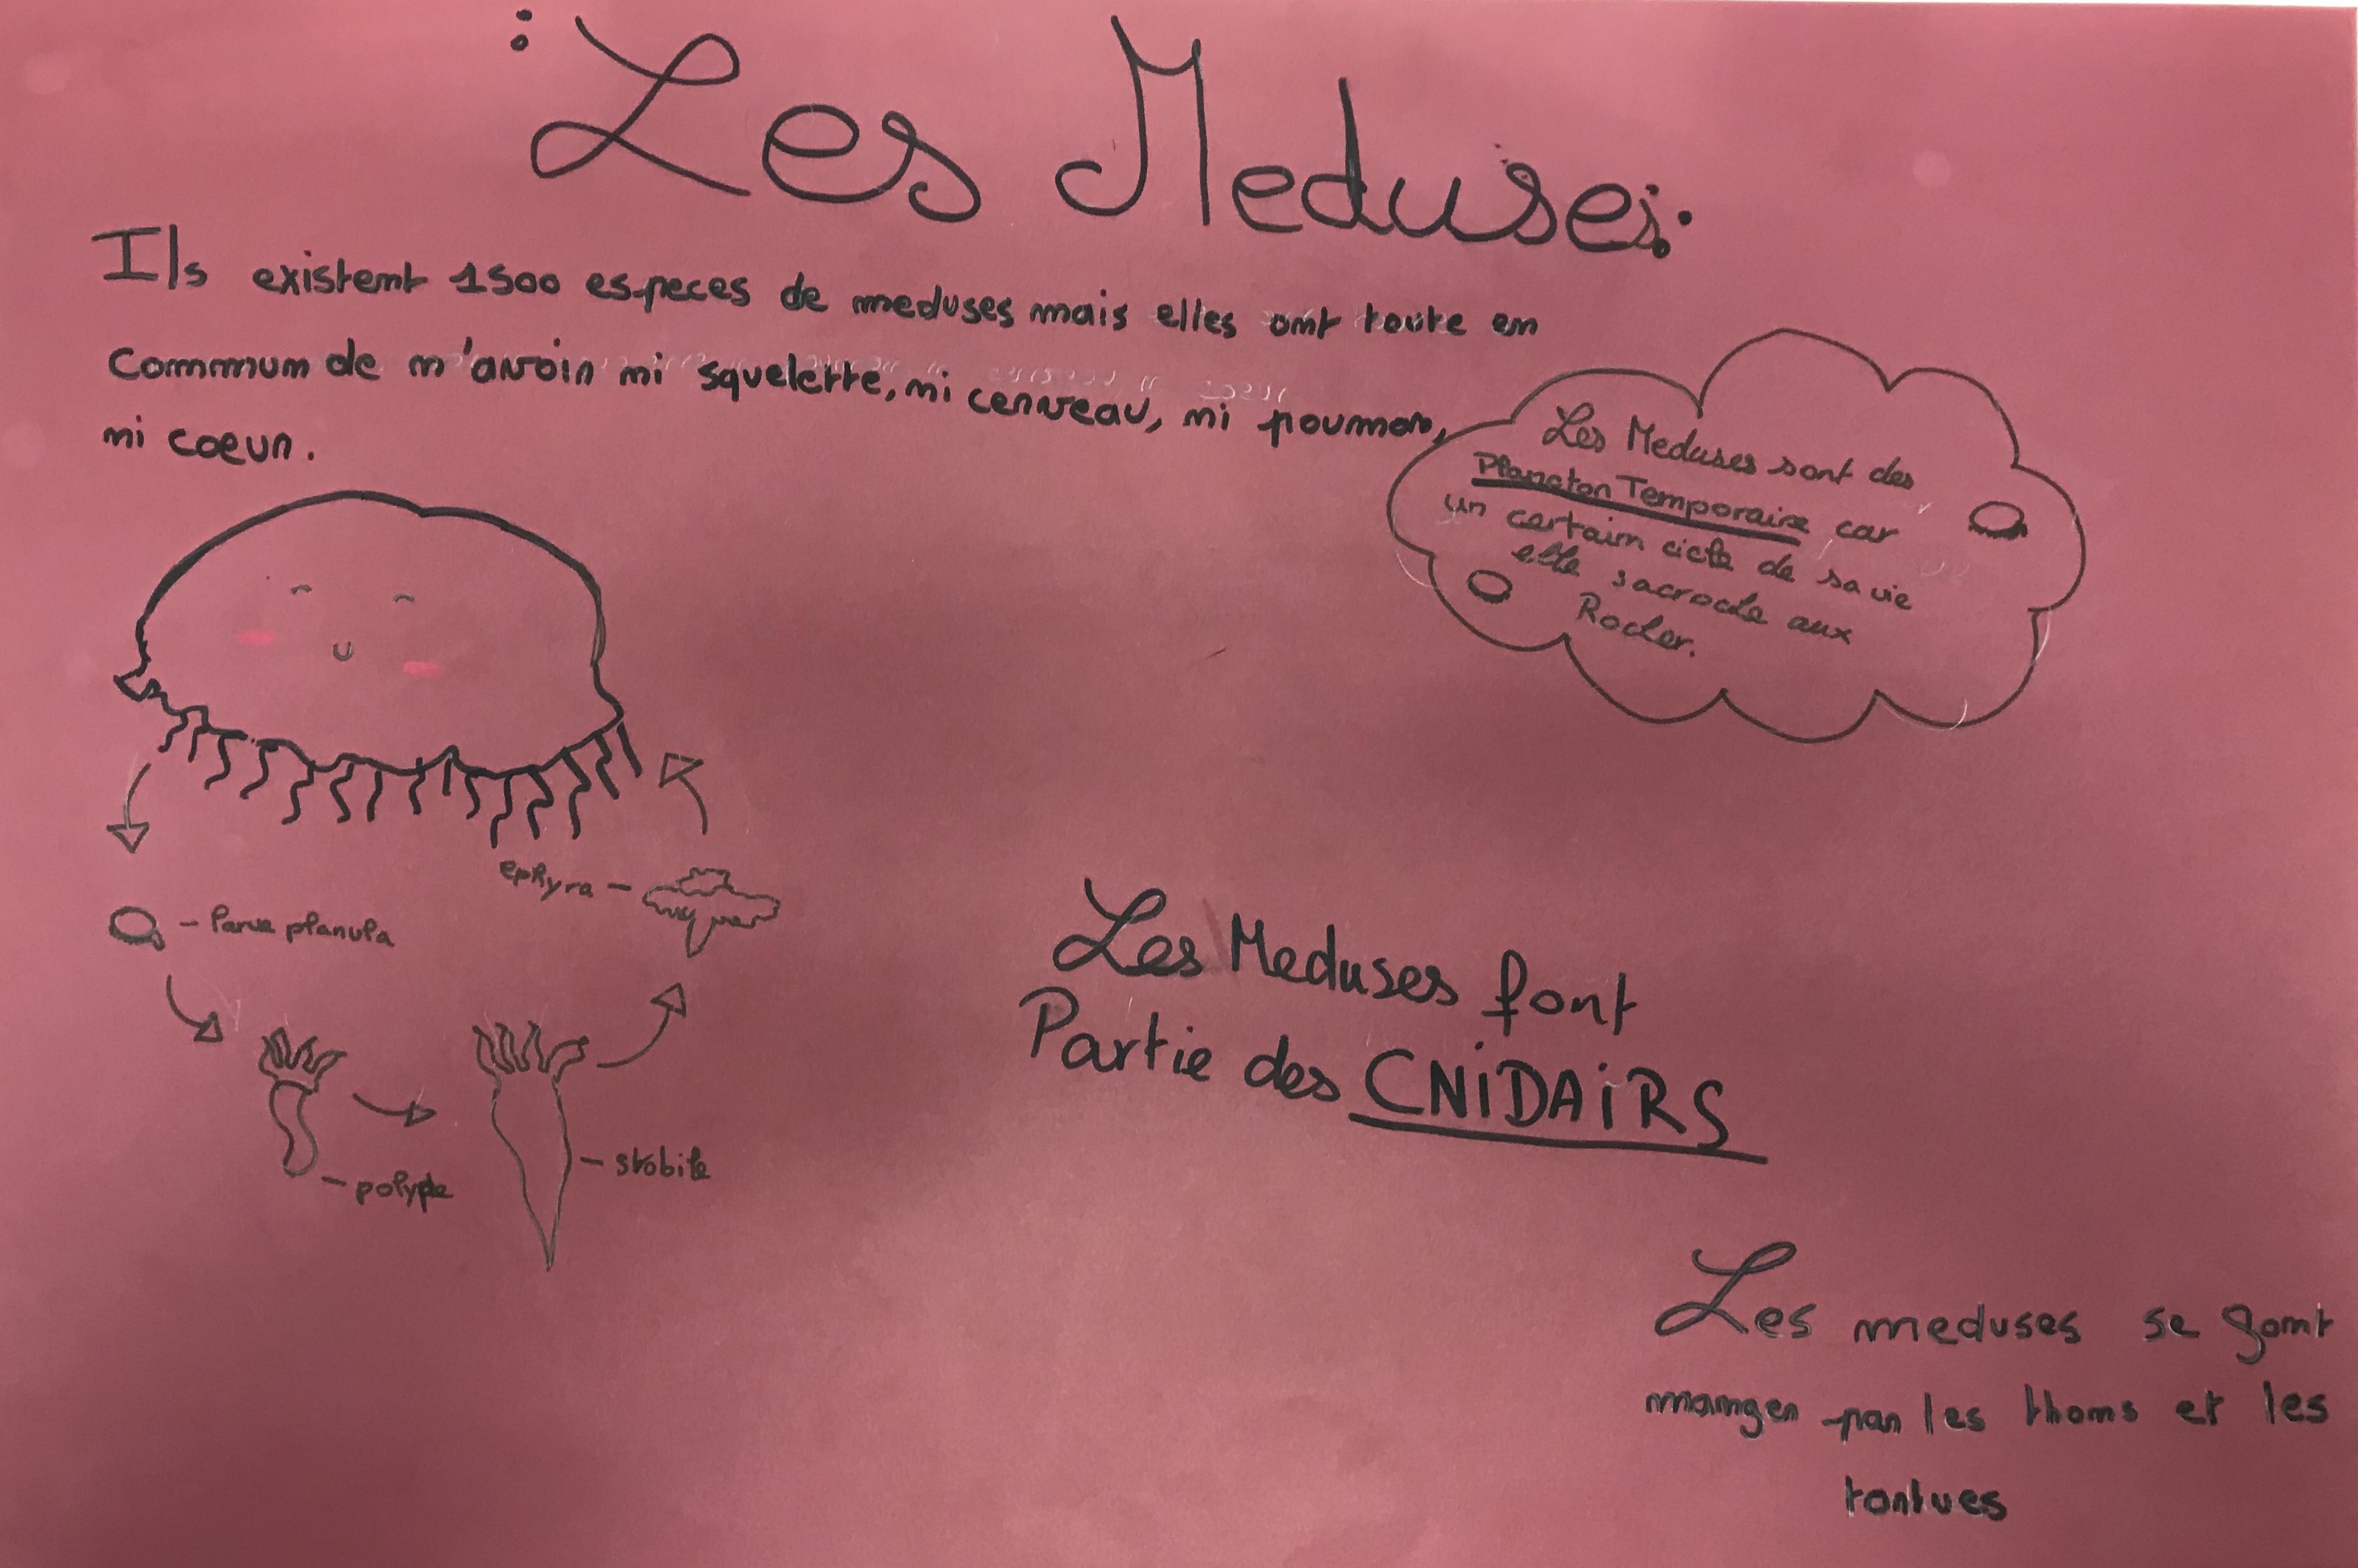 : Les Meduses :
Ils existent 1500 especes de meduses mais elles ont toute en
commun de n'avoir ni squelette, ni cerveau, ni poumon,
ni coeur.
Les Meduses sont des
Plancton Temporaire car
un certain cicle de sa vie
elle sacroche aux
Rocher.
ephyra
larve planula
polype
stobile
Les Meduses font
Partie des CNiDAiRS
Les meduses se font
manger par les thons et les
tortues